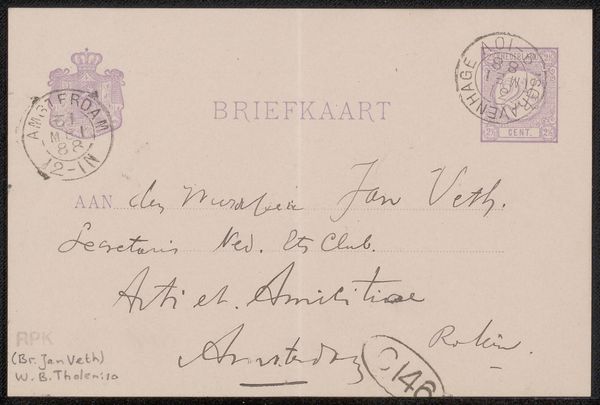 NEDERLAND
'S GRAVENHAGE
88
AMSTERDAM
31
MEI
88
12-1N
BRIEFKAART
2½ CENT. 2½
AAN den Jan Veth.
Secretaris Ned. Ets Club.
Arti et Amicitiae
Amsterdam Rokin.
C146
RPK
(Br. Jan Veth)
W. B. Tholen:10